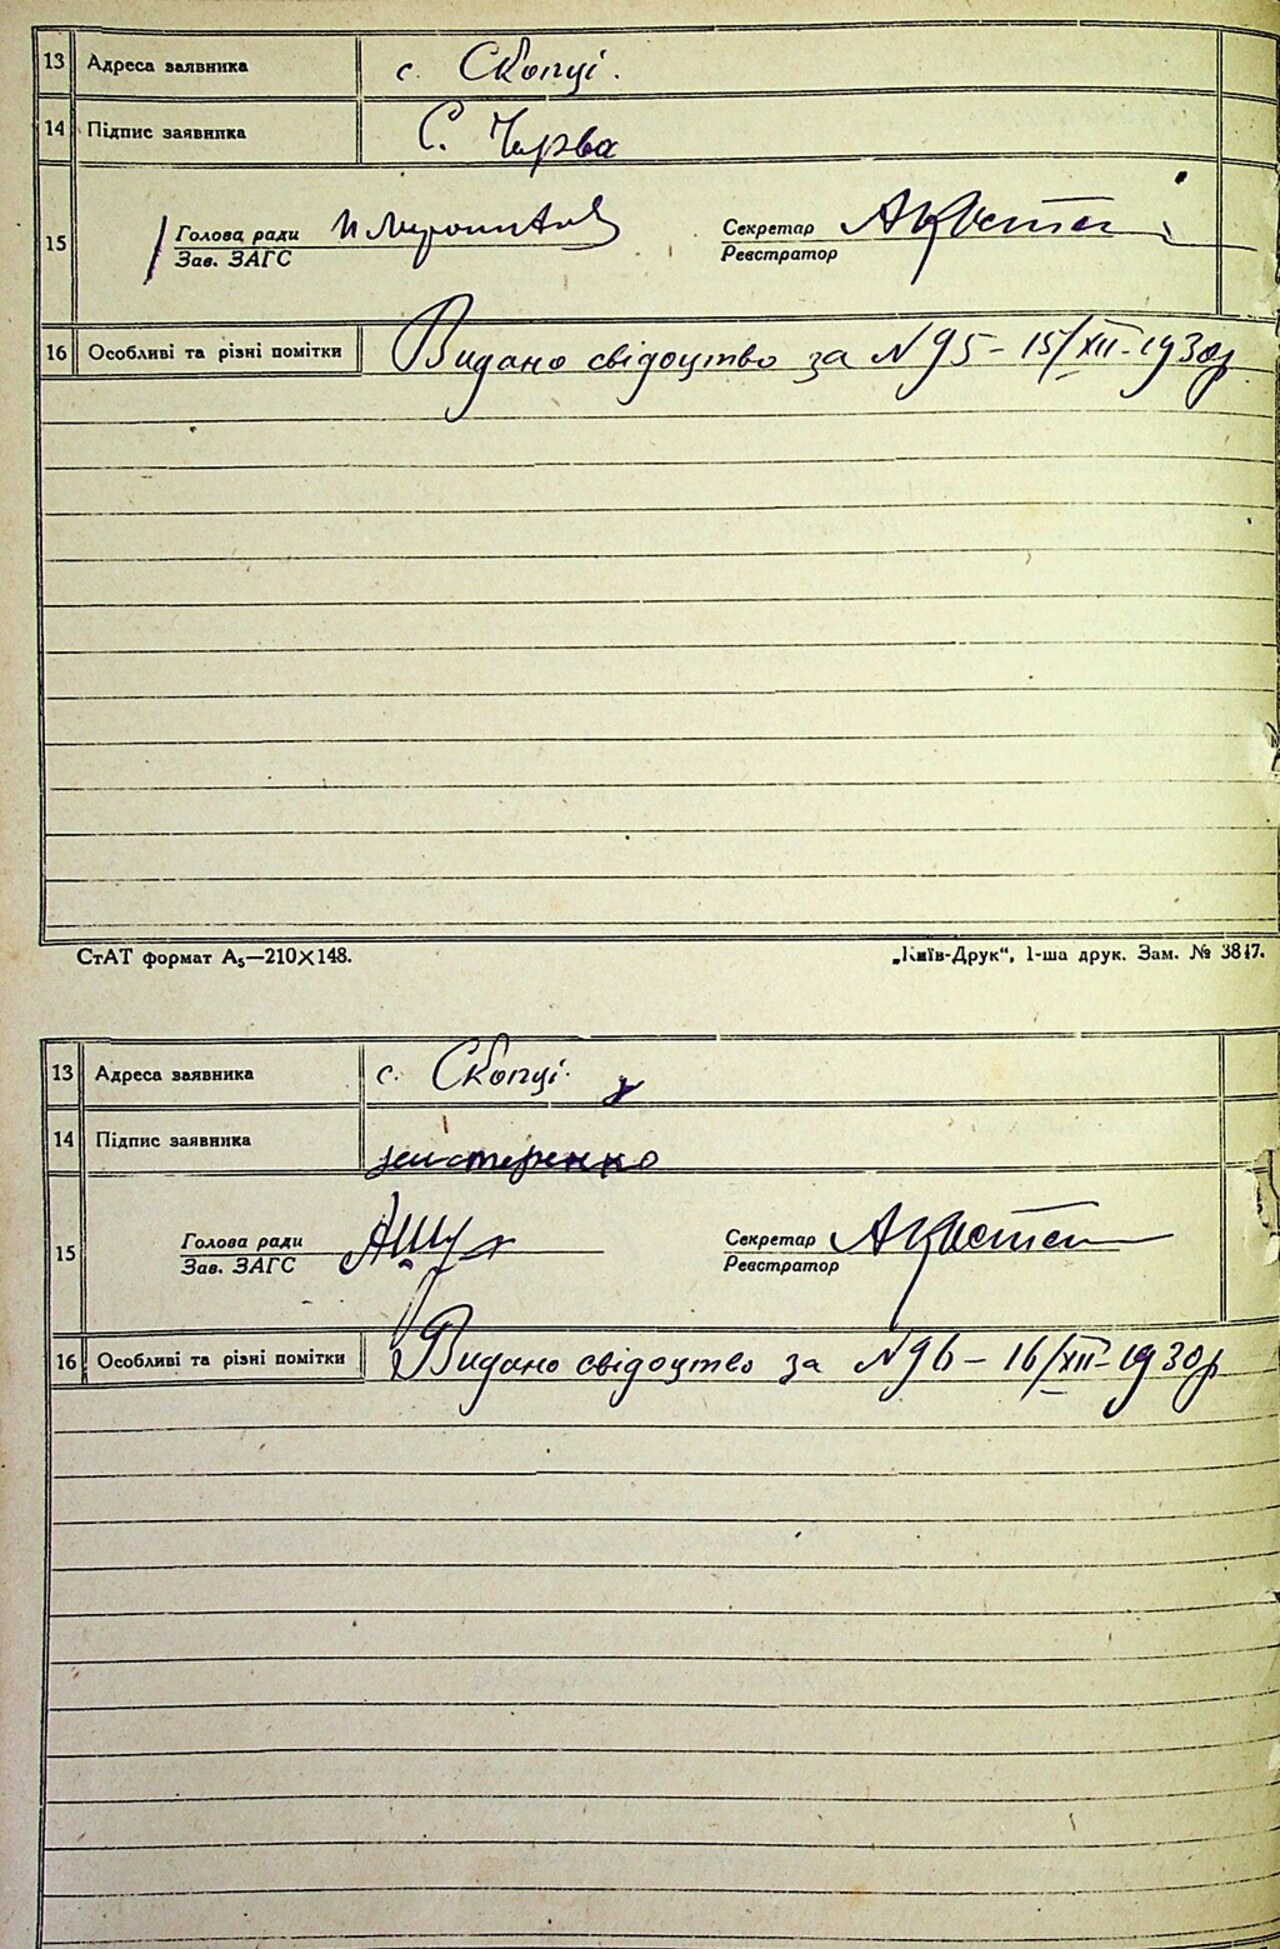 13 Адреса заявника с. Скопці.
14 Підпис заявника С. Чирва
15 Голова ради Секретар
Зав. ЗАГС Реєстратор
16 Особливі та різні помітки Видано свідоцтво за N 95 – 15/XII-1930р
СтАТ формат А₅—210×148. „Київ-Друк“, 1-ша друк. Зам. № 3847.
13 Адреса заявника с. Скопці.
14 Підпис заявника
15 Голова ради Секретар
Зав. ЗАГС Реєстратор
16 Особливі та різні помітки Видано свідоцтво за N 96 – 16/XII-1930р